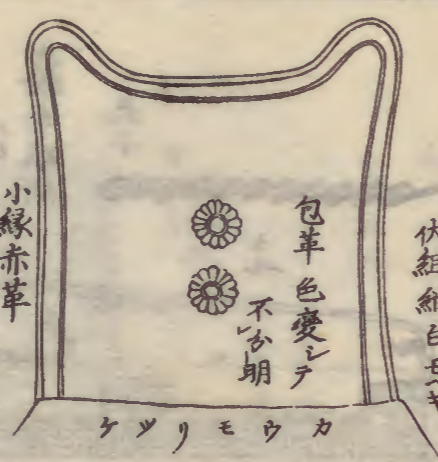 伏組糸白モヱキ
包革色變シテ
不分明
小縁赤革
カウモリツケ